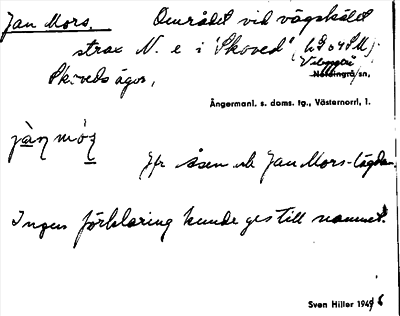 Jan Mors. Området vid vägskälet
strax N. e i 'Skoved'
Skoveds ägor, Nätingrå/sn,
Ångermanl. s. doms. tg., Västernorrl. l.
Jfr åsen och Jan Mors-lägdan.
Ingen förklaring kunde ges till namnet.
Sven Hiller 1946